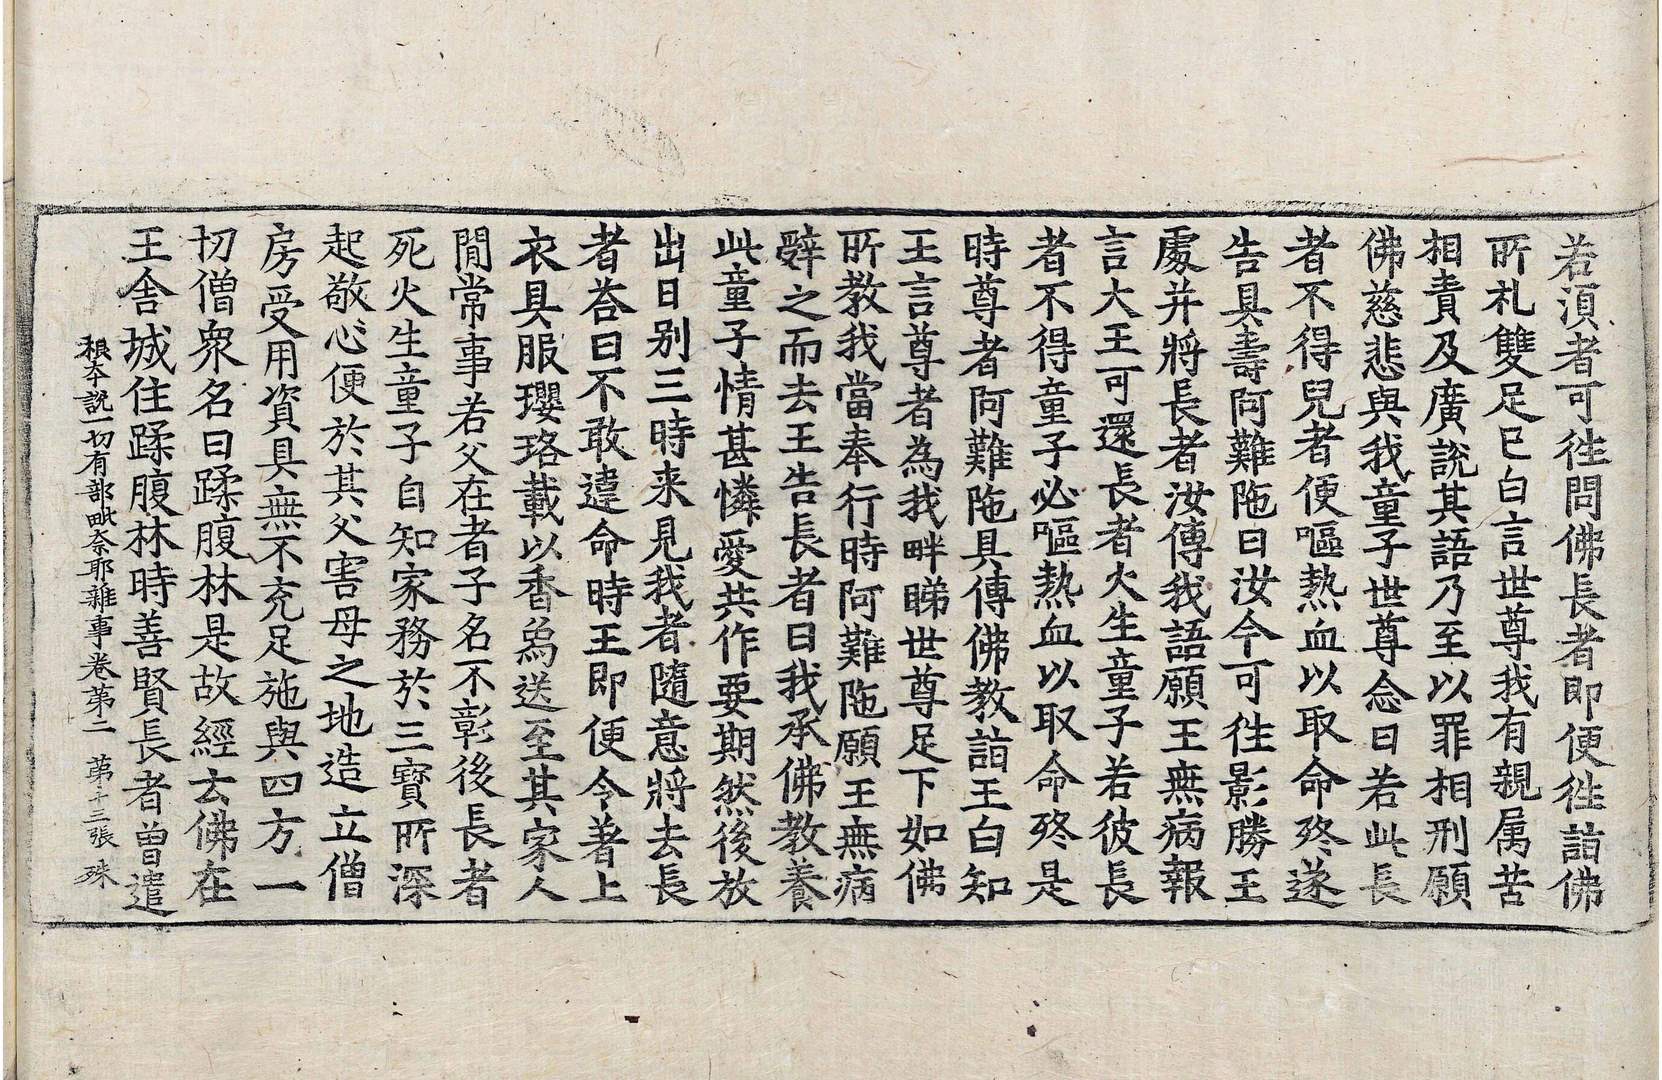 若湏者可徃問佛長者即便徃詣佛
所礼雙足已白言世尊我有親属苦
相責及廣說其語乃至以罪相刑願
佛慈悲與我童子世尊念曰若此長
者不得兒者便嘔熱血以取命終遂
告具壽阿難陁曰汝今可徃影勝王
處并將長者汝傳我語願王無病報
言大王可還長者火生童子若彼長
者不得童子必嘔熱血以取命終是
時尊者阿難陁具傳佛教詣王白知
王言尊者為我畔睇世尊足下如佛
所教我當奉行時阿難陁願王無病
辝之而去王告長者曰我承佛教養
此童子情甚憐愛共作要期然後放
出日別三時来見我者隨意將去長
者荅曰不敢違命時王即便令著上
衣具服瓔珞載以香烏送至其家人
間常事若父在者子名不彰後長者
死火生童子自知家務於三寶所深
起敬心便於其父害母之地造立僧
房受用資具無不充足施與四方一
切僧衆名曰蹂腹林是故經云佛在
王舍城住蹂腹林時善賢長者曽遣
根本說一切有部毗奈耶雜事卷苐二　苐十三張　殊